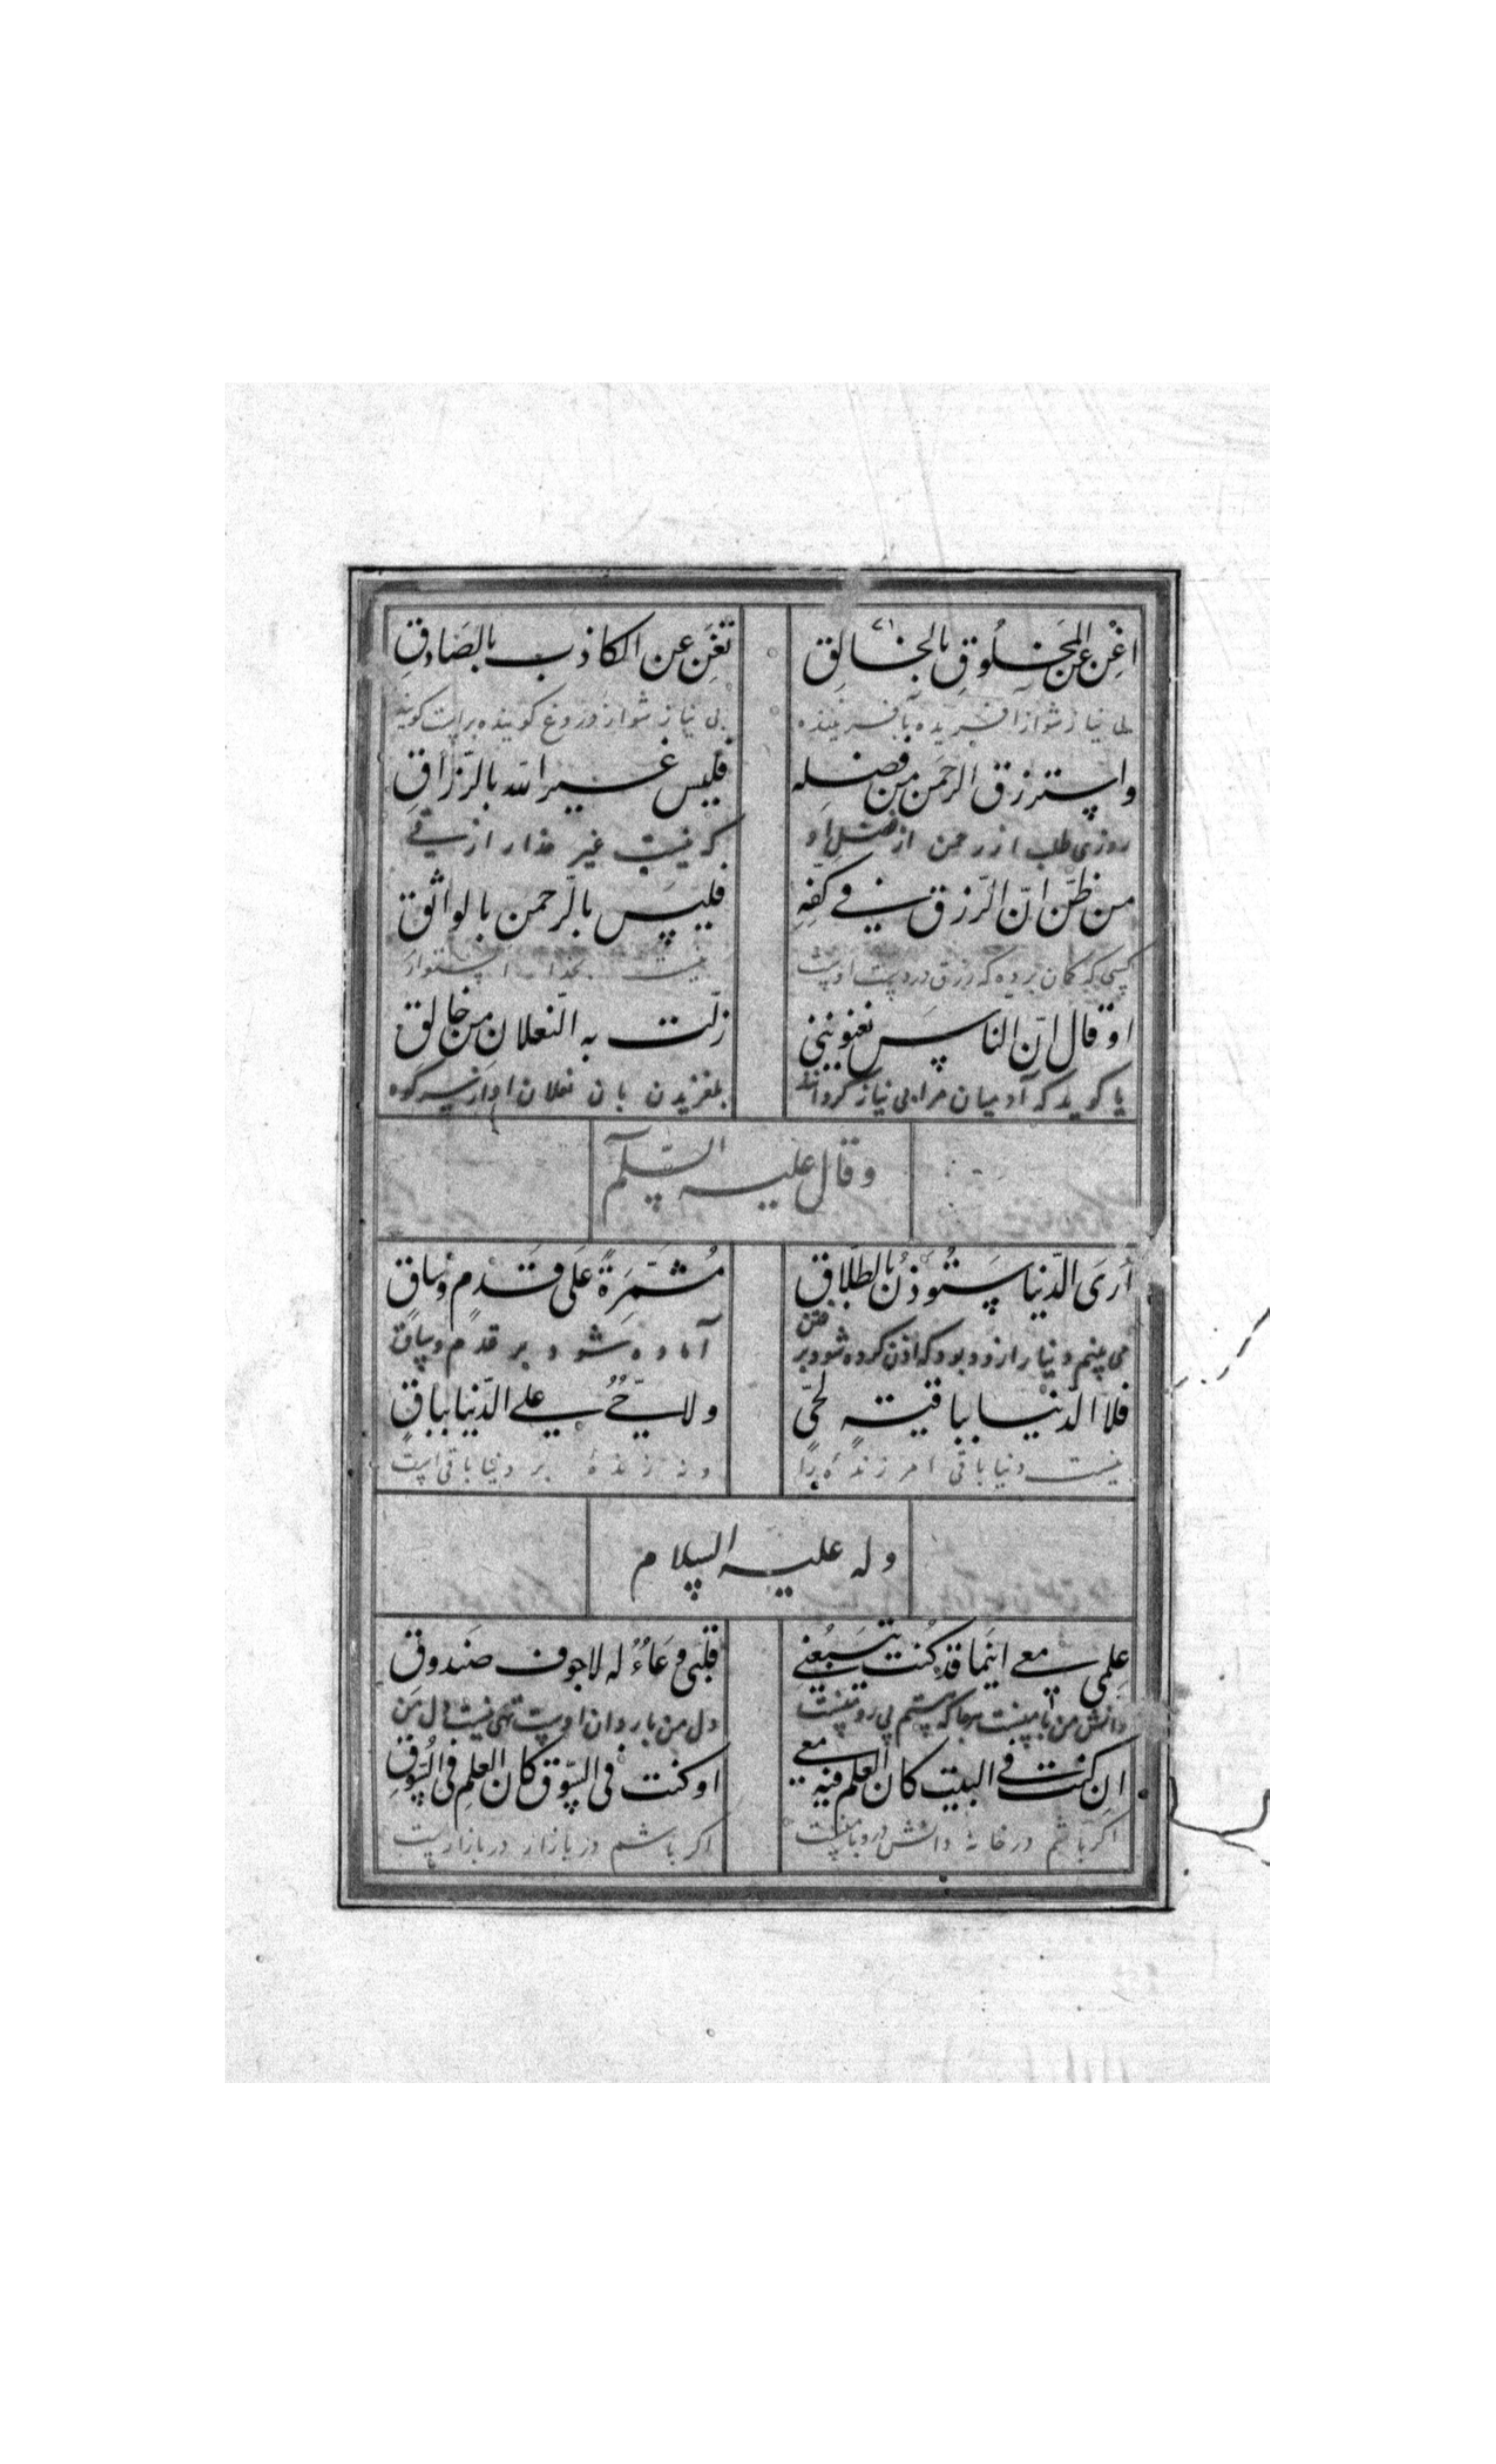 اغْنِ عن المَخلُوقِ بالخالِقِ تغنَ عن الكاذب بالصَادِقِ
بی نیاز شو از آفریده بآفریننده بی نیاز شو از دروغ گوینده براست گوینده
واسترزق الرحمن من فضله فليس غير الله بالرّزاقِ
روزی طلب از رحمن از فضل او که نیست غیر خدا رازقی
من ظنّ انّ الرّزق في كفّهِ فليس بالرّحمن بالواثق
کسی که گمان برده که رزق در دست اوست نیست بخدا استوار
او قال انّ الناس يغنونني زلّت به النّعلان من حالق
یا گوید که آدمیان مرا بی نیاز کرده‌اند بلغزیدن بان نعلان او از کوه
وقال عليه السّلم
أرَى الدّنيا ستُوذَنُ بالطّلاقِ مُشَمّرَةً عَلى قَدَمٍ وسَاقِ
می بینم دنیا را زود بود که اذن کرده شود برفتن آماده شود بر قدم و ساق
فلا الدنيا بباقية لحيّ ولا حيٌّ على الدّنيا بباقٍ
نیست دنیا باقی مر زنده را و نه زنده بر دنیا باقی است
وله عليه السلام
عِلمِي معي اينَما قد كُنت يتبعُني قلبي وِعَاءُ له لا جوف صَندوقِ
دانش من با منست هرجا که هستم پی رو منست دل من باردان اوست تهی نیست دل من
ان كنت في البيت كان العلم فيه معي او كنت في السّوق كان العلم في السّوقِ
اگر باشم در خانه دانش درو با منست اگر باشم در بازار در بازارست